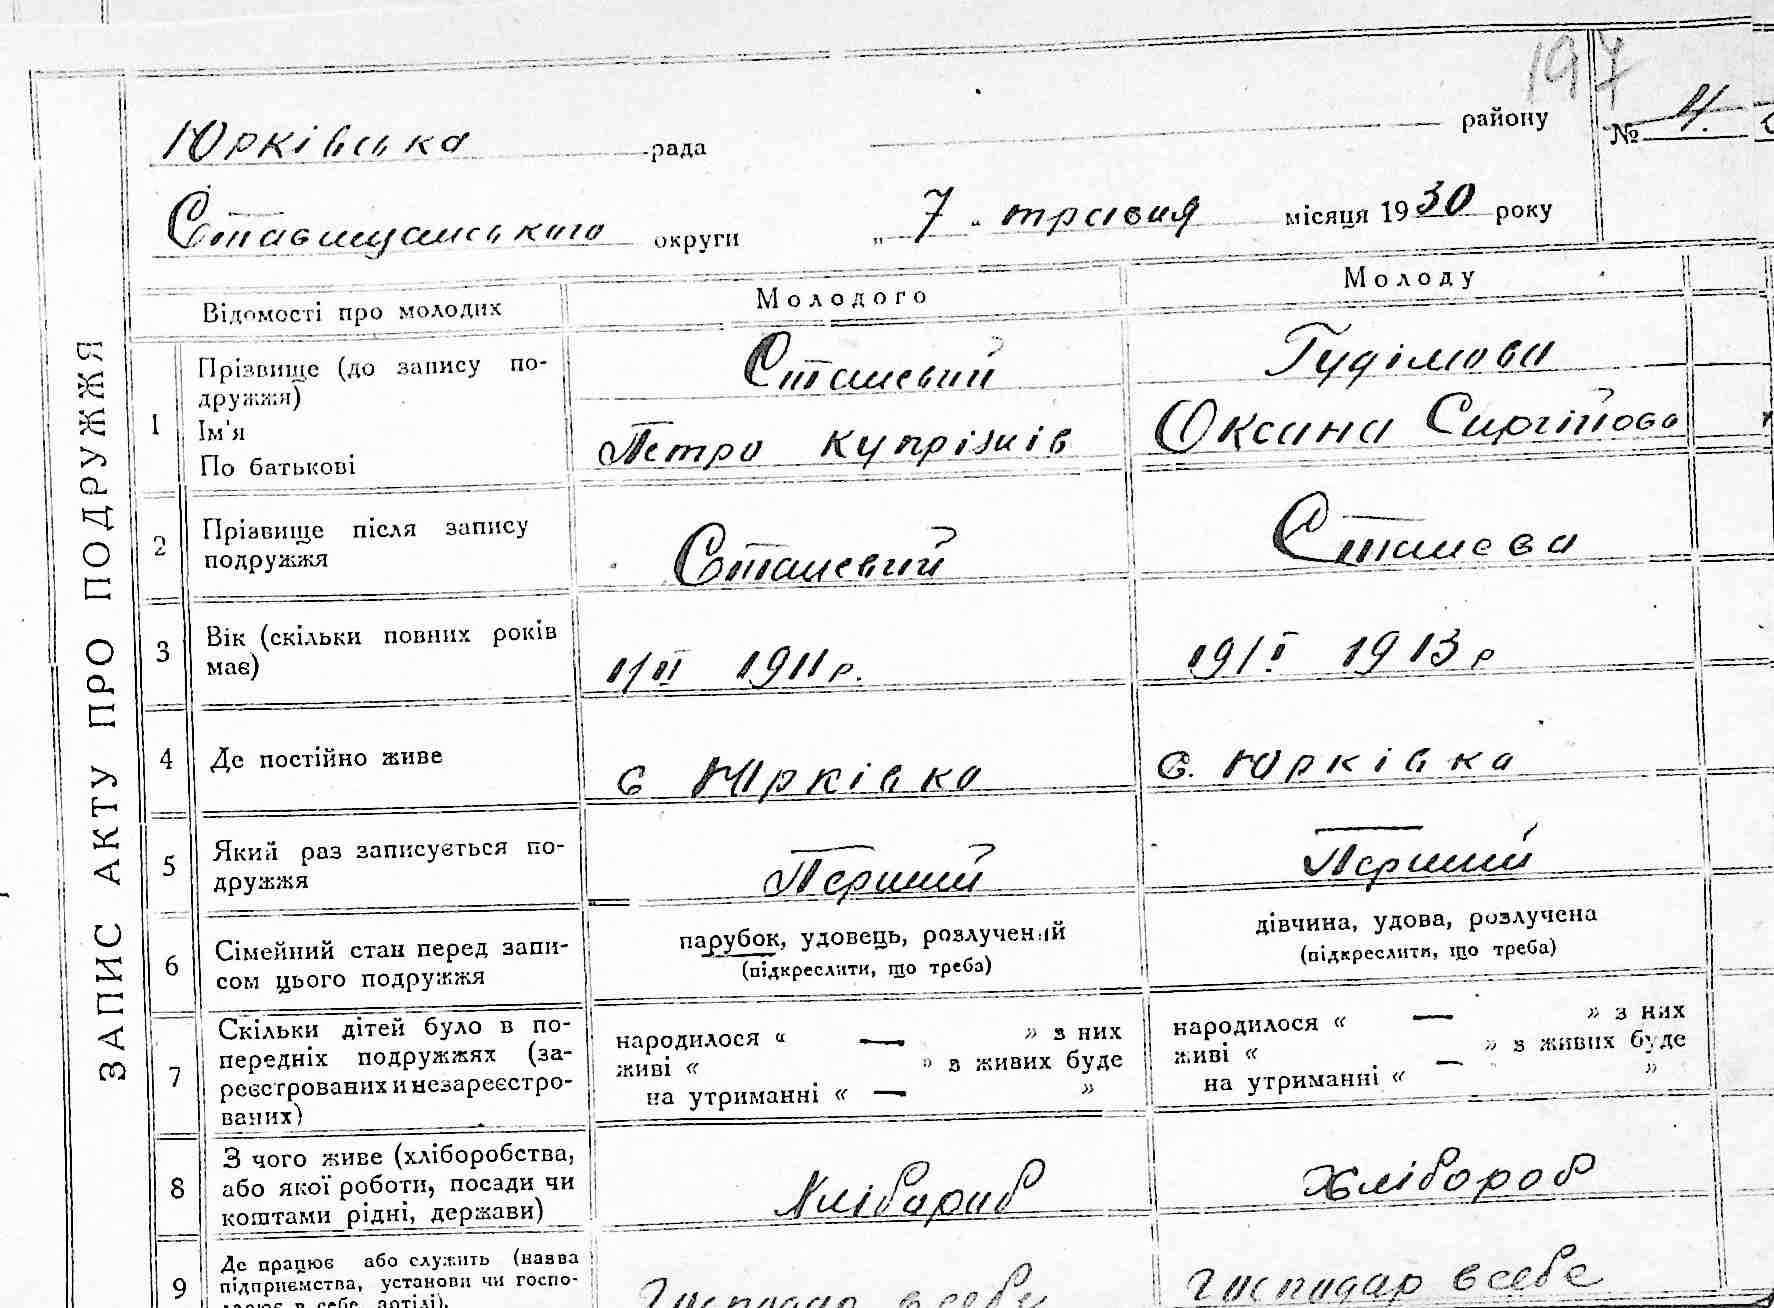 197
Юрківська рада району № 4.
Ставищанського округи „ 7 " травня місяця 1930 року
ЗАПИС АКТУ ПРО ПОДРУЖЖЯ
Відомості про молодих Молодого Молоду
1 Прізвище (до запису по-
дружжя)
Ім'я
По батькові
Сташевий Гудімова
Петро Купріянів Оксана Сиргійова
2 Прізвище після запису
подружжя
Сташевий Сташева
3 Вік (скільки повних років
має)
11/II 1911 р. 19/I 1913 р
4 Де постійно живе с Юрківка с. Юрківка
5 Який раз записується по-
дружжя
Перший Перший
6 Сімейний стан перед запи-
сом цього подружжя
парубок, удовець, розлучений
(підкреслити, що треба)
дівчина, удова, розлучена
(підкреслити, що треба)
7 Скільки дітей було в по-
передніх подружжях (за-
реєстрованих и незареєстро-
ваних)
народилося “ — ” з них
живі “ ” з живих буде
на утриманні “ — ”
народилося “ — ” з них
живі “ — ” з живих буде
на утриманні “ ”
8 З чого живе (хліборобства,
або якої роботи, посади чи
коштами рідні, держави)
Хлібороб Хлібороб
9 Де працює або служить (назва
підприємства, установи чи госпо-
дарює в себе, артілі).
Господар в себе Господар в себе